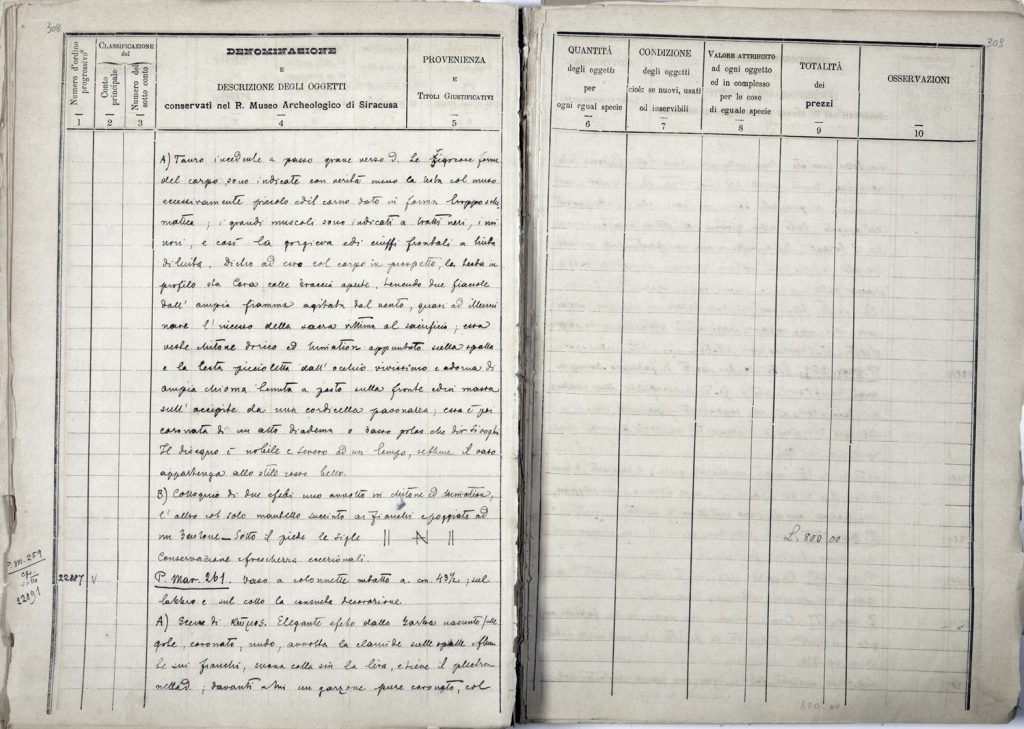 308
Numero d'ordine progressivo
CLASSIFICAZIONE del
Conto principale
Numero del sotto conto
DENOMINAZIONE
E
DESCRIZIONE DEGLI OGGETTI
conservati nel R. Museo Archeologico di Siracusa
PROVENIENZA
E
TITOLI GIUSTIFICATIVI
1 2 3 4 5
A) Tauro incedente a passo grave verso d. Le vigorose forme
del corpo sono indicate con verità meno la testa col muso
eccessivamente piccolo ed il corno dato in forma troppo sche
matica; i grandi muscoli sono indicati a tratti neri, i mi
nori, e così la gorgiera ed i ciuffi frontali a tinta
diluita. Dietro ad esso col corpo in prospetto, la testa in
profilo sta Cora colle braccia aperte, tenendo due fiaccole
dall'ampia fiamma agitata dal vento, quasi ad illumi
nare l'incesso della sacra vittima al sacrificio; essa
veste chitone dorico ed himation appuntato sulla spalla
e la testa piccioletta dall'occhio vivissimo è adorna di
ampia chioma tenuta a posto sulla fronte ed in massa
sull'occipite da una cordicella paonazza; essa è poi
coronata di un alto diadema o basso polos che dir si voglia
Il disegno è nobile e severo ad un tempo, sebbene il vaso
appartenga allo stile rosso bello.
B) Colloquio di due efebi uno avvolto in chitone ed himation,
l'altro col solo mantello succinto ai fianchi e poggiato ad
un bastone. Sotto il piede le sigle || N ||
Conservazione e freschezza eccezionali.
P. M. 259
sotto
22891
22887 V
P. Mar. 261. Vaso a colonnette intatto a. cm. 43½; sul
labbro e sul collo la consueta decorazione.
A) Scena di κῶμος. Elegante efebo dalla barba nascente sulle
gote, coronato, nudo, avvolta la clamide sulle spalle
sui fianchi, suona colla sin. la lira, e tiene il plectron
nella d.; davanti a lui un garzone pure coronato, col
309
QUANTITÀ
degli oggetti
per
ogni egual specie
CONDIZIONE
degli oggetti
cioè: se nuovi, usati
od inservibili
VALORE ATTRIBUITO
ad ogni oggetto
ed in complesso
per le cose
di eguale specie
TOTALITÀ
dei
prezzi
OSSERVAZIONI
6 7 8 9 10
L. 800.00
800.00